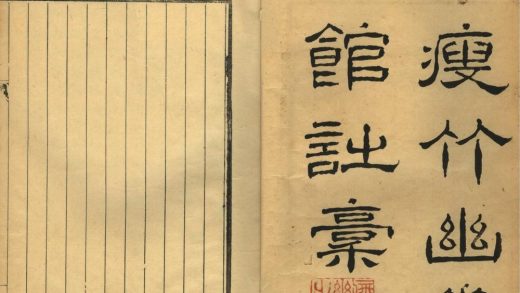 瘦竹幽
館詩稾